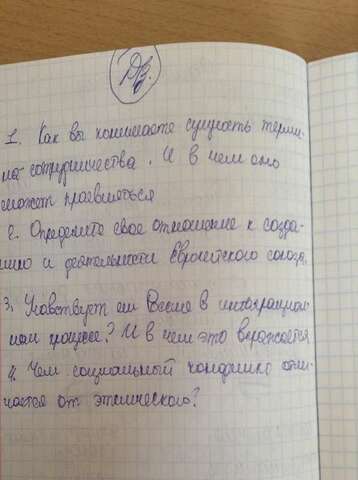 Дз.
1. Как вы понимаете сущность терми-
на сотрудничества. И в чем оно
может проявляться
2. Определите свое отношение к созда-
нию и деятельности Европейского союза.
3. Участвует ли Россия в интеграцион-
ном процессе? И в чем это выражается
4. Чем социальный конфликт отли-
чается от этнического?